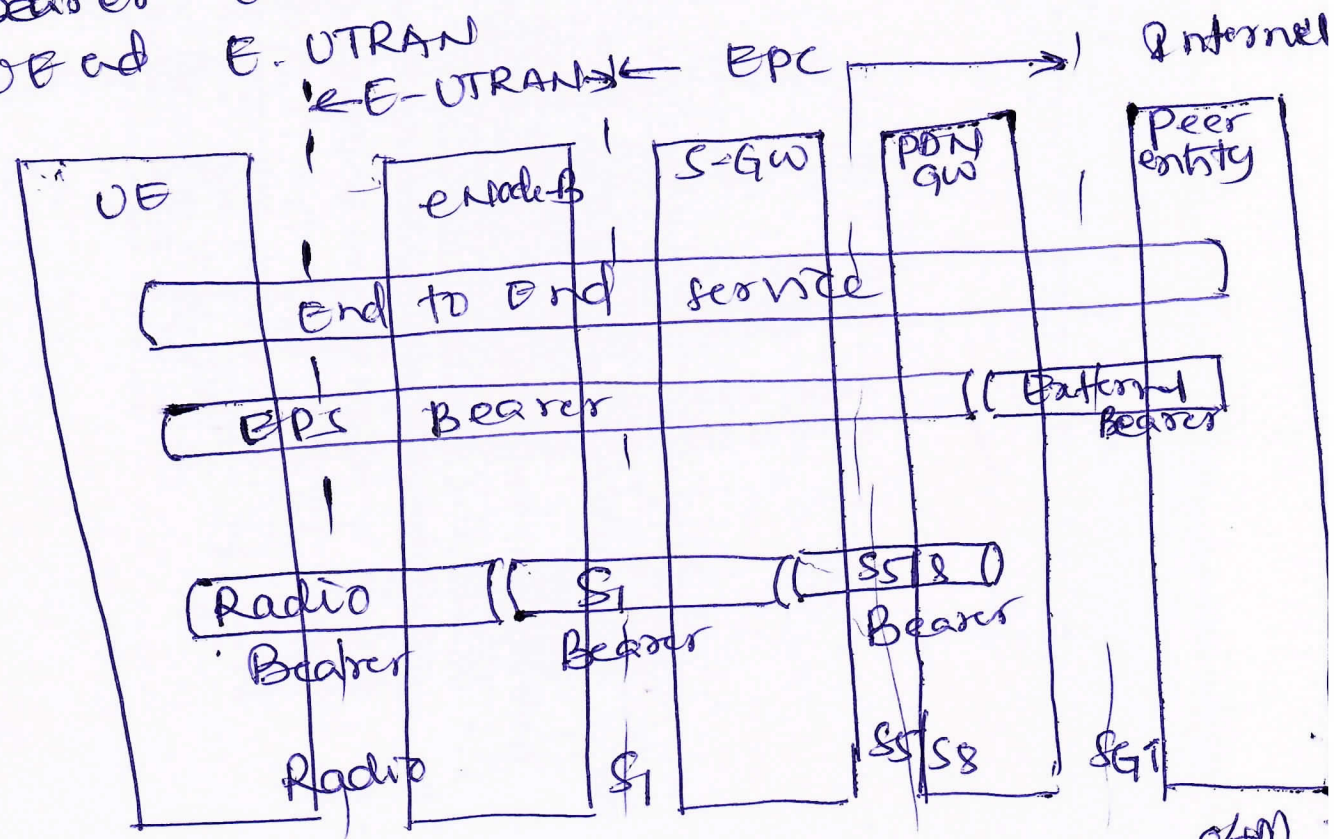 UE and E-UTRAN
E-UTRAN EPC Internet
UE eNode-B S-GW PDN GW Peer entity
End to End service
EPS Bearer External Bearer
Radio Bearer S1 Bearer S5/8 Bearer
Radio S1 S5/S8 SGi